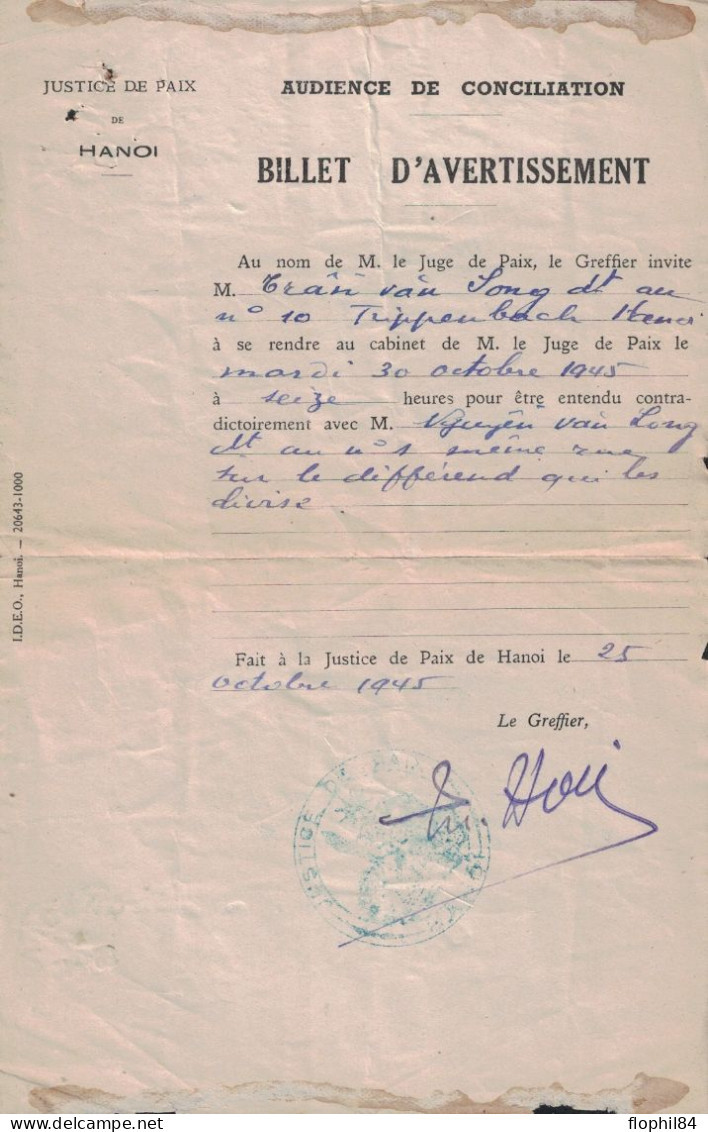 JUSTICE DE PAIX
DE
HANOI
AUDIENCE DE CONCILIATION
BILLET D'AVERTISSEMENT
Au nom de M. le Juge de Paix, le Greffier invite
M. Trần văn Long dt au
n° 10 Trippenbach Hanoi
à se rendre au cabinet de M. le Juge de Paix le
mardi 30 octobre 1945
à seize heures pour être entendu contra-
dictoirement avec M. Nguyễn văn Long
dt au n° 1 même rue
sur le différend qui les
divise
Fait à la Justice de Paix de Hanoi le 25
octobre 1945
Le Greffier,
JUSTICE DE PAIX
I.D.E.O., Hanoi. — 20643-1000
flophil84